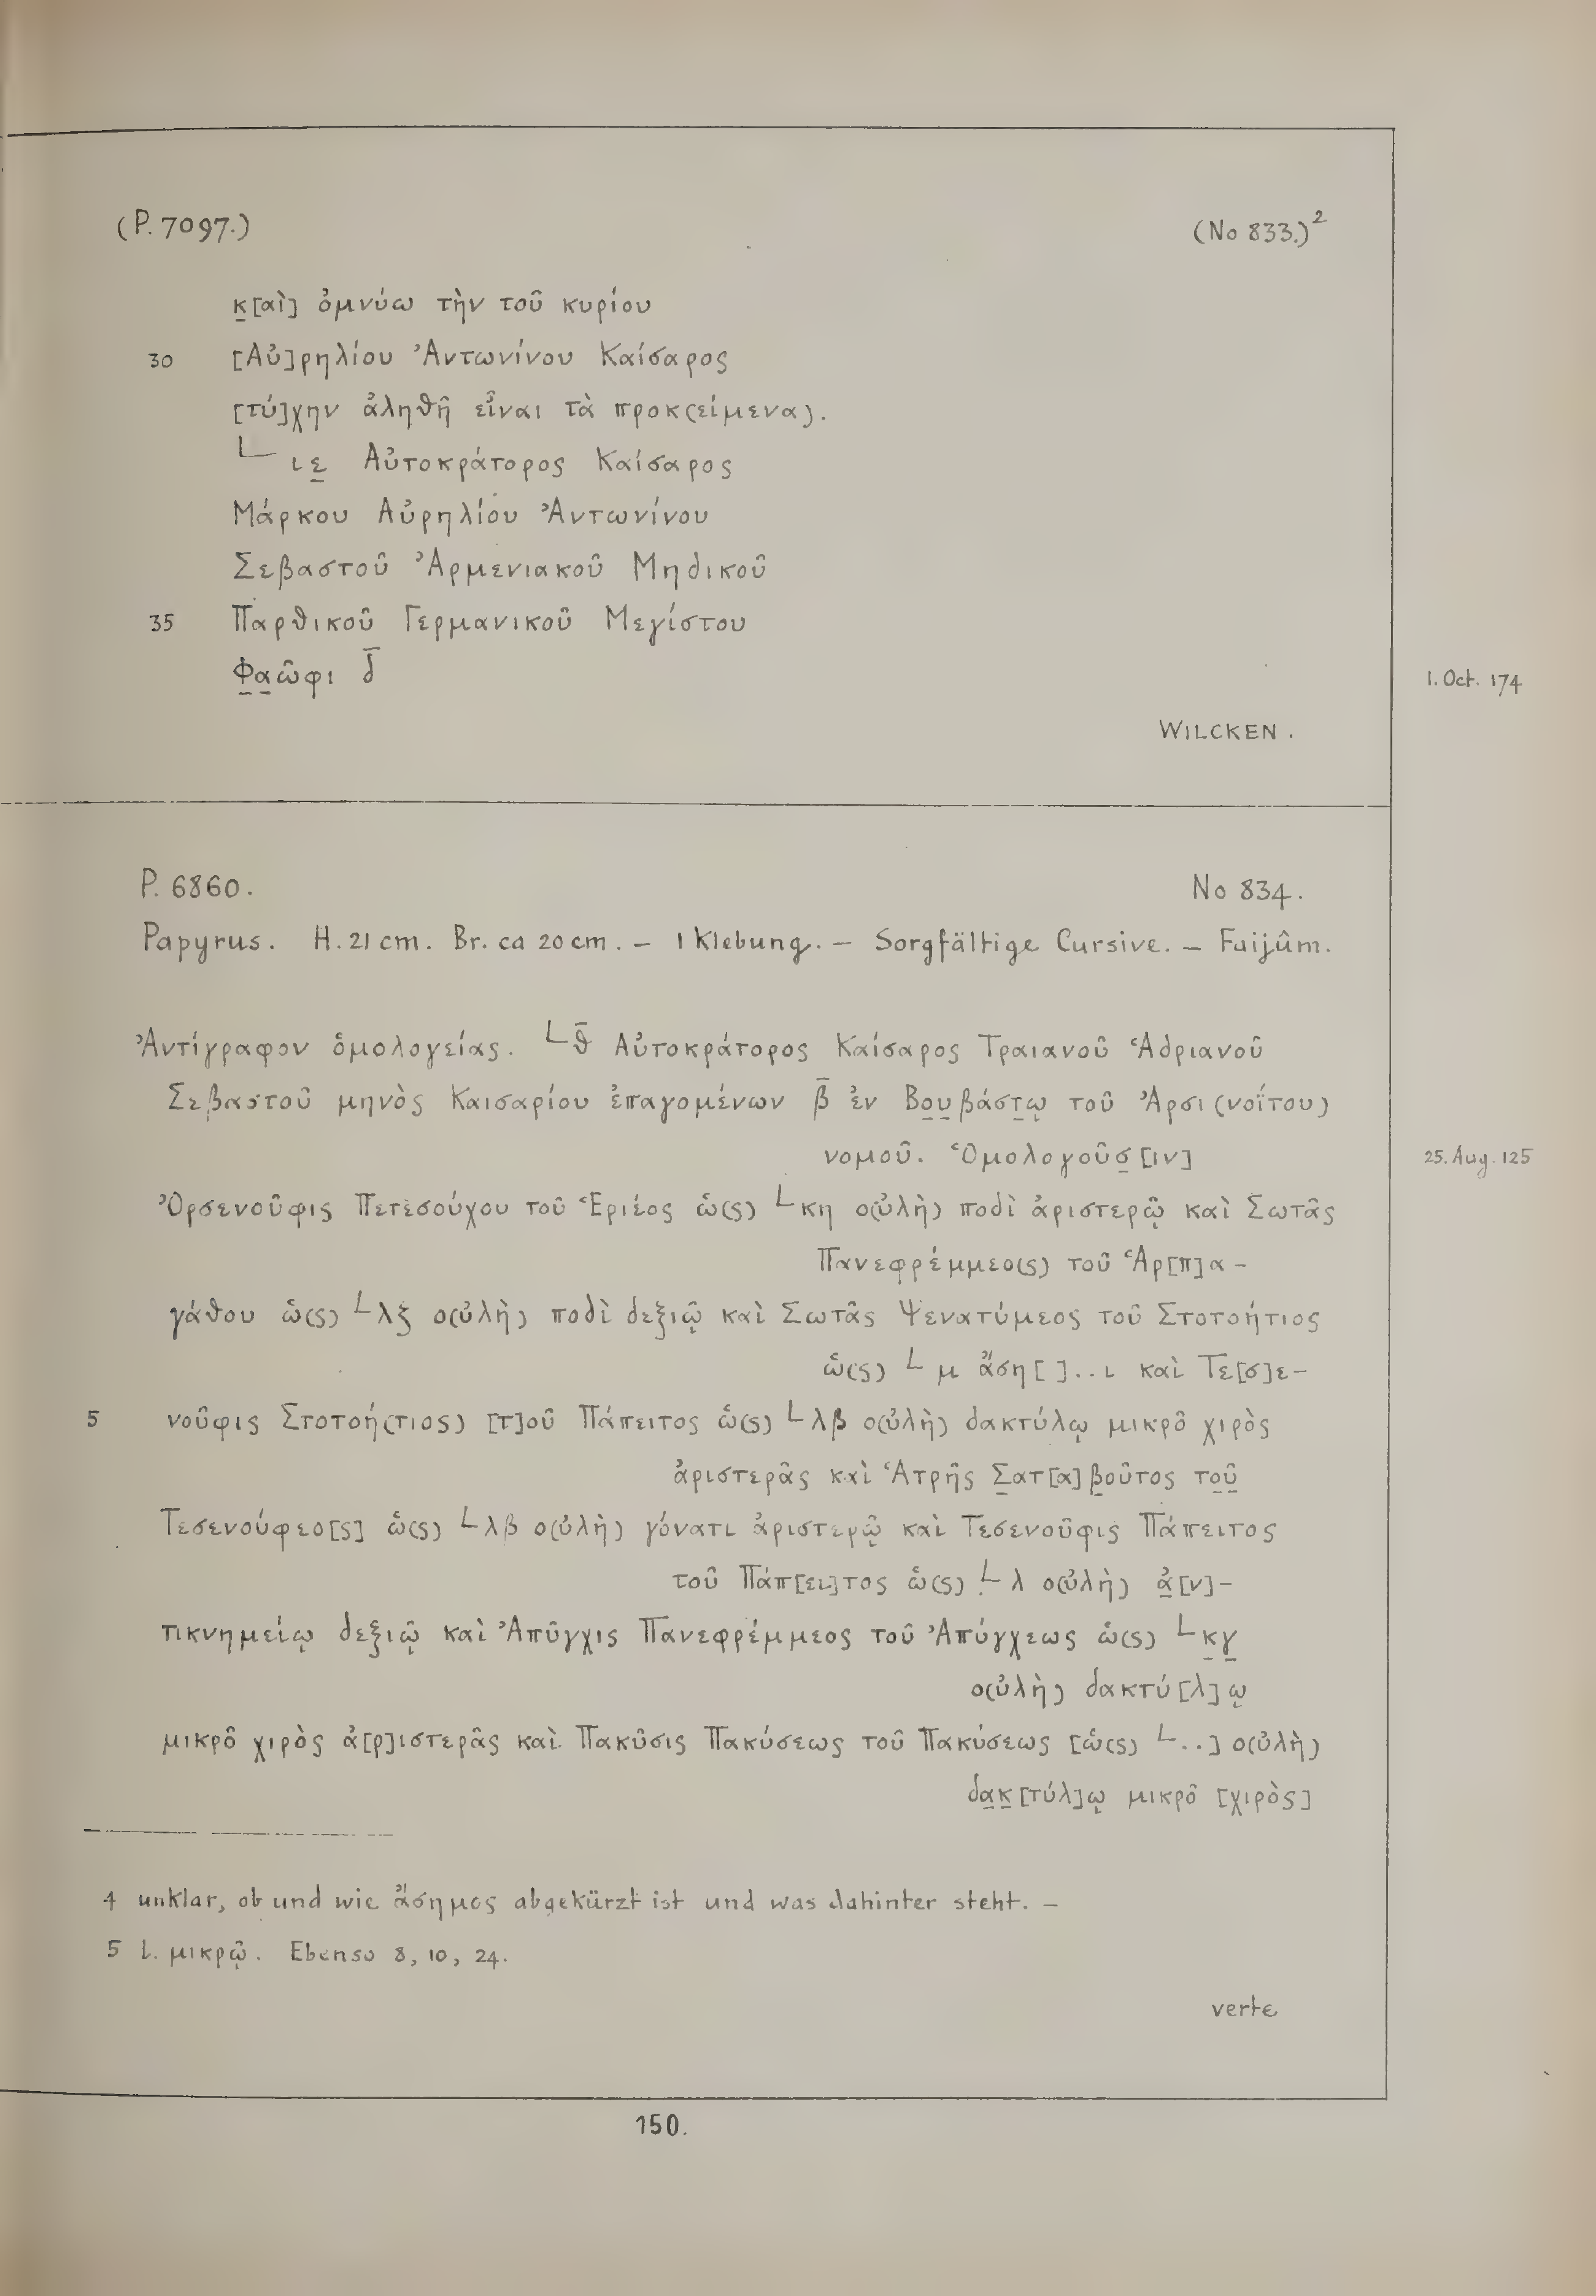 (P. 7097.) (No 833.)²
κ̲[αὶ] ὀμνύω τὴν τοῦ κυρίου
30 [Αὐ]ρηλίου Ἀντωνίνου Καίσαρος
[τύ]χην ἀληθῆ εἶναι τὰ προκ(είμενα).
∟ ιε̲ Αὐτοκράτορος Καίσαρος
Μάρκου Αὐρηλίου Ἀντωνίνου
Σεβαστοῦ Ἀρμενιακοῦ Μηδικοῦ
35 Παρθικοῦ Γερμανικοῦ Μεγίστου
Φ̲α̲ῶφι δ̅ 1. Oct. 174
WILCKEN.
P. 6860. No 834.
Papyrus. H. 21 cm. Br. ca 20 cm. – 1 Klebung. – Sorgfältige Cursive. – Faijûm.
Ἀντίγραφον ὁμολογείας. ∟θ̅ Αὐτοκράτορος Καίσαρος Τραιανοῦ Ἁδριανοῦ
Σεβαστοῦ μηνὸς Καισαρίου ἐπαγομένων β̅ ἐν Βο̲υ̲βάστ̲ῳ τοῦ Ἀρσι(νοΐτου)
νομοῦ. Ὁμολογοῦσ̲[ιν] 25. Aug. 125
Ὀρσενοῦφις Πετεσούχου τοῦ Ἑριέος ὡ(ς) ∟κη ο(ὐλὴ) ποδὶ ἀριστερῷ καὶ Σωτᾶς
Πανεφρέμμεο(ς) τοῦ Ἁρ[π]α-
γάθου ὡ(ς) ∟λξ ο(ὐλὴ) ποδὶ δεξιῷ καὶ Σωτᾶς Ψενατύμεος τοῦ Στοτοήτιος
ὡ(ς) ∟ μ ἄση[ ]..ι καὶ Τε[σ]ε-
5 νοῦφις Στοτοή(τιος) [τ]οῦ Πάπειτος ὡ(ς) ∟λβ ο(ὐλὴ) δακτύλῳ μικρο͂ χιρὸς
ἀριστερᾶς καὶ Ἁτρῆς Σ̲ατ[α]β̲οῦτος το̲ῦ̲
Τεσενούφεο[ς] ὡ(ς) ∟λβ ο(ὐλὴ) γόνατι ἀριστερῷ καὶ Τεσενοῦφις Πάπειτος
τοῦ Πάπ[ει]τος ὡ(ς) ∟ λ ο(ὐλὴ) ἀ̲[ν]-
τικνημείῳ δεξιῷ καὶ Ἀπῦγχις Πανεφρέμμεος τοῦ Ἀπύγχεως ὡ(ς) ∟κ̲γ̲
ο(ὐλὴ) δακτύ[λ]ῳ
μικρο͂ χιρὸς ἀ[ρ]ιστερᾶς καὶ Πακῦσις Πακύσεως τοῦ Πακύσεως [ὡ(ς) ∟..] ο(ὐλὴ)
δα̲κ̲[τύλ]ῳ μικρο͂ [χιρὸς]
4 unklar, ob und wie ἄσημος abgekürzt ist und was dahinter steht. –
5 l. μικρῷ. Ebenso 8, 10, 24.
verte
150.